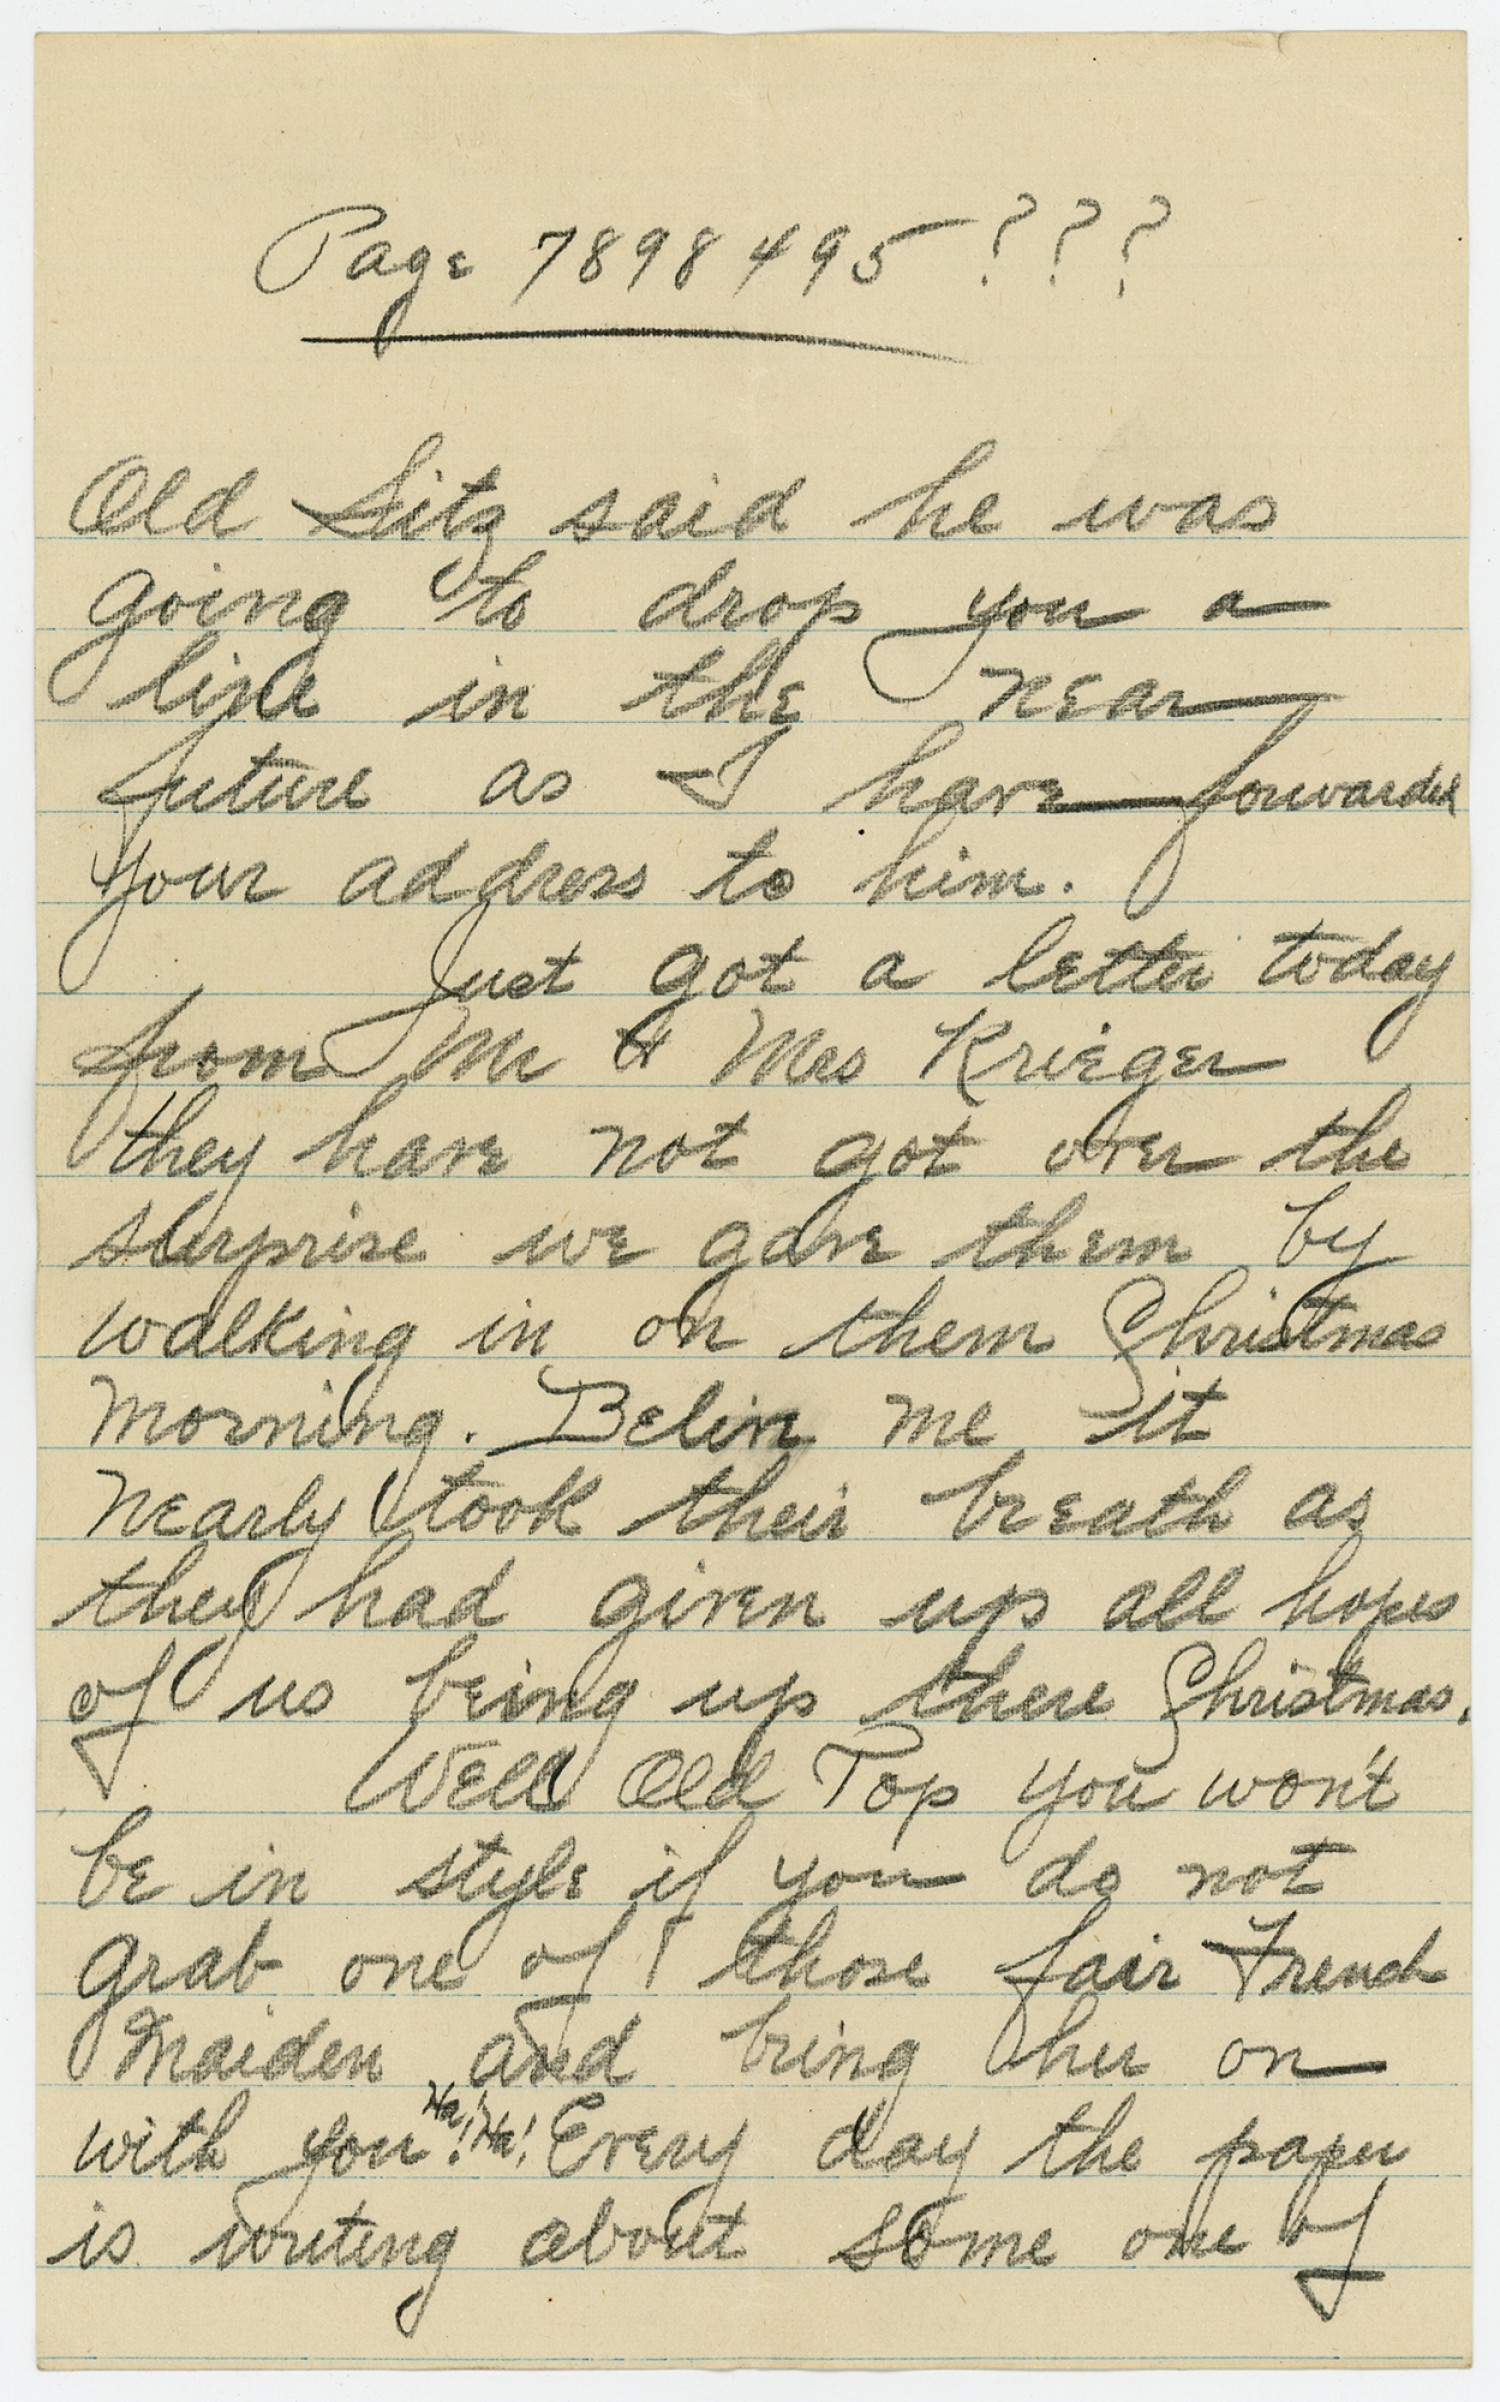 Page 7898495 ???
Old Sitz said he was
going to drop you a
line in the near
future as I have forwarded
your address to him.
Just got a letter today
from Mr & Mrs Krieger
they have not got over the
surprise we gave them by
walking in on them Christmas
morning. Belive me it
nearly took their breath as
they had given up all hopes
of us being up there Christmas.
Well Old Top you won't
be in style if you do not
grab one of those fair French
Maiden and bring her on
with you Ha! Ha! Every day the paper
is writing about some one of